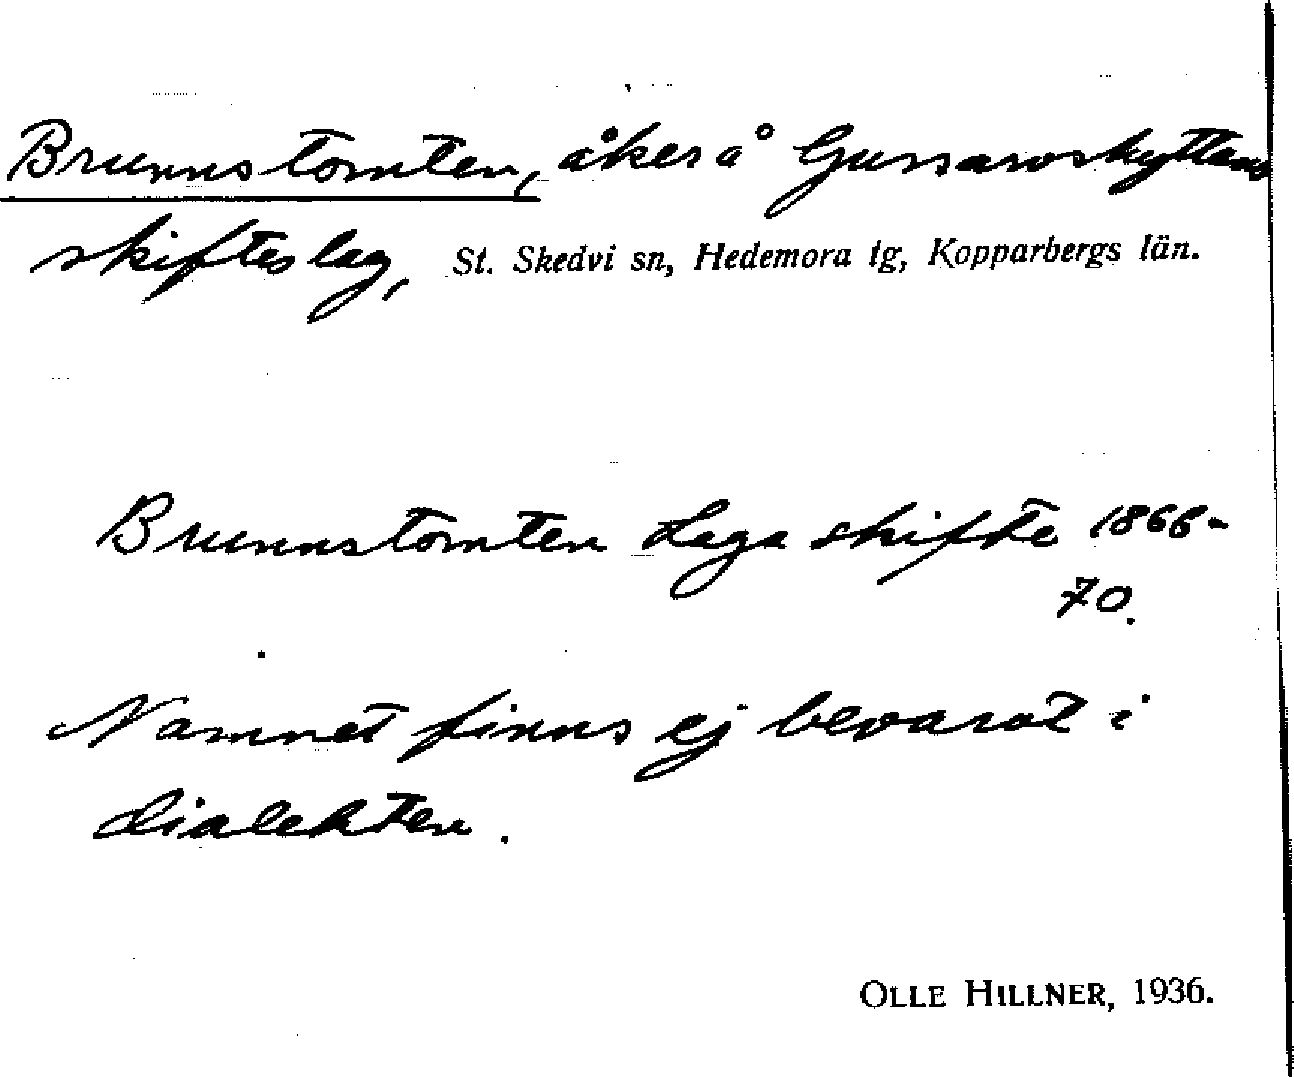 Brunnstomten, åker å Gussarvshyttans
skifteslag, St. Skedvi sn, Hedemora tg, Kopparbergs län.
Brunnstomten Laga skifte 1866-
70.
Namnet finns ej bevarat i
dialekten.
OLLE HILLNER, 1936.